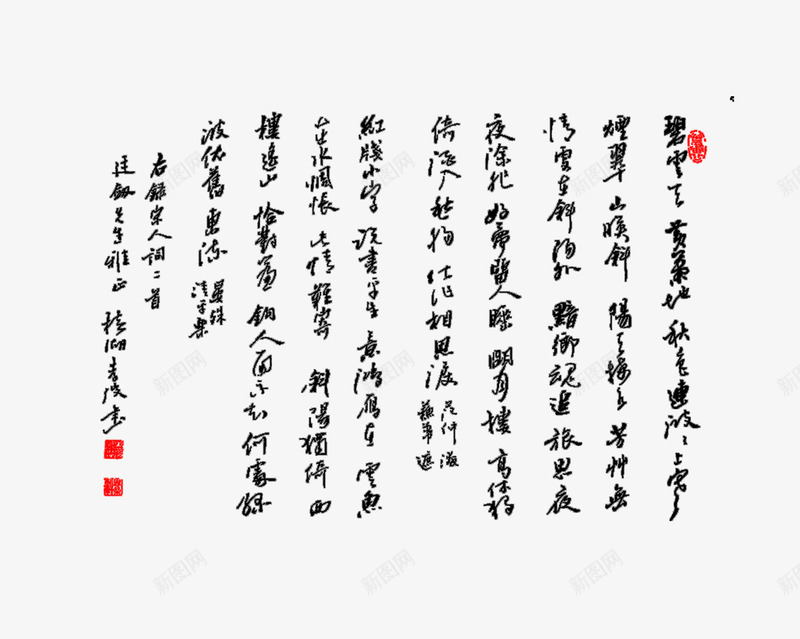 碧雲天 黄葉地 秋色連波々上寒
煙翠 山暎斜 陽天接水 芳艸無
情 更在斜陽外 黯鄉魂 追旅思 夜
夜除非 好夢留人睡 明月樓 高休獨
倚 酒入愁腸 化作相思淚 范仲淹
蘇幕遮
紅牋小字 說盡平生意 鴻雁在雲魚
在水 惆悵此情難寄 斜陽獨倚西
樓 遙山恰對簾鉤 人面不知何處 綠
波依舊東流 晏殊
清平樂
右録宋人詞二首
先生雅正
新图网